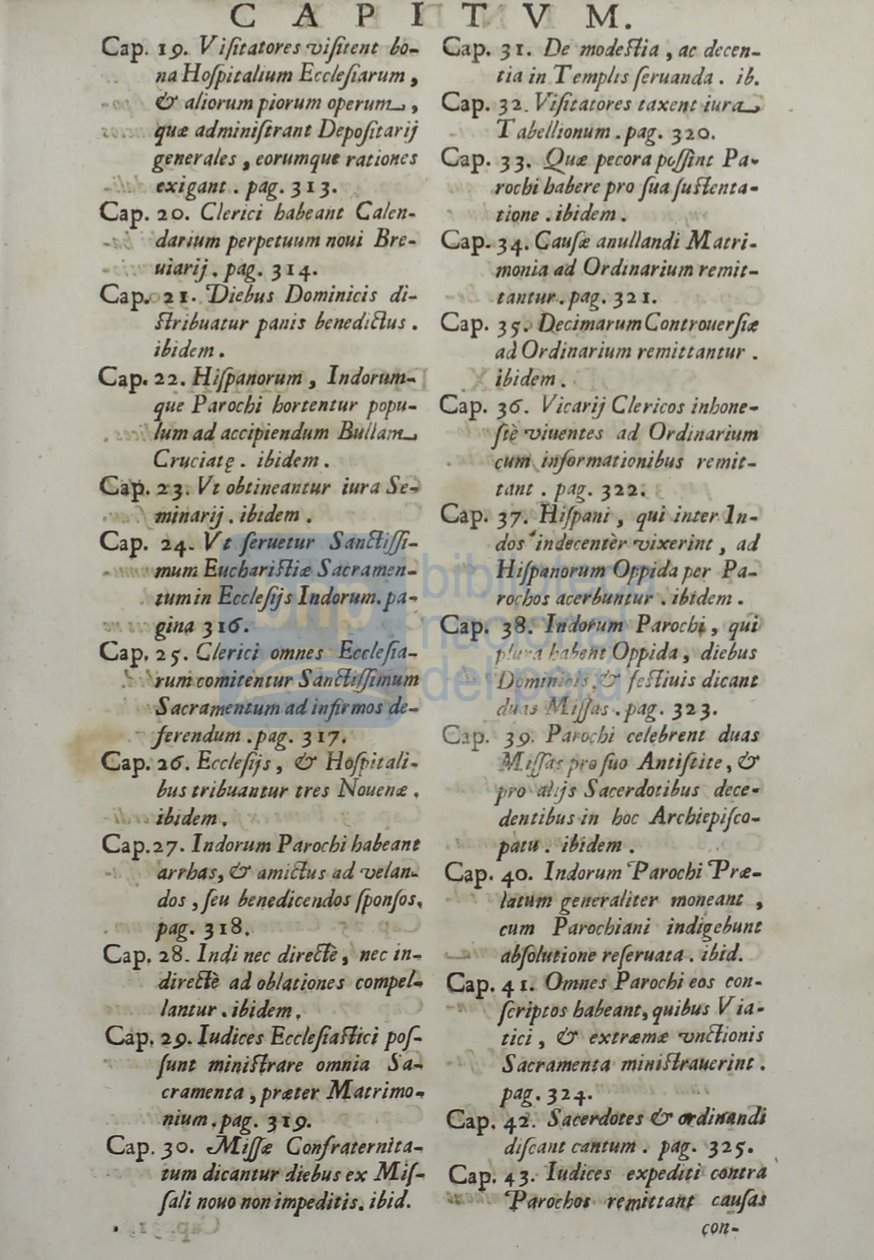 CAPITVM.
Cap. 19. Viſitatores viſitent bo-
na Hoſpitalium Eccleſiarum,
& aliorum piorum operum,
quæ adminiſtrant Depoſitarij
generales, eorumque rationes
exigant. pag. 313.
Cap. 20. Clerici habeant Calen-
darium perpetuum noui Bre-
uiarij. pag. 314.
Cap. 21. Diebus Dominicis di-
ſtribuatur panis benedictus.
ibidem.
Cap. 22. Hiſpanorum, Indorum-
que Parochi hortentur popu-
lum ad accipiendum Bullam
Cruciatę. ibidem.
Cap. 23. Vt obtineantur iura Se-
minarij. ibidem.
Cap. 24. Vt ſeruetur Sanctiſſi-
mum Euchariſtiæ Sacramen-
tum in Eccleſijs Indorum. pa-
gina 316.
Cap. 25. Clerici omnes Eccleſia-
rum comitentur Sanctiſſimum
Sacramentum ad infirmos de-
ferendum. pag. 317.
Cap. 26. Eccleſijs, & Hoſpitali-
bus tribuantur tres Nouenæ.
ibidem.
Cap. 27. Indorum Parochi habeant
arrhas, & amictus ad velan-
dos, ſeu benedicendos ſponſos,
pag. 318.
Cap. 28. Indi nec directè, nec in-
directè ad oblationes compel-
lantur. ibidem.
Cap. 29. Iudices Eccleſiaſtici poſ-
ſunt miniſtrare omnia Sa-
cramenta, præter Matrimo-
nium. pag. 319.
Cap. 30. Miſſæ Confraternita-
tum dicantur diebus ex Miſ-
ſali nouo non impeditis. ibid.
Cap. 31. De modeſtia, ac decen-
tia in Templis ſeruanda. ib.
Cap. 32. Viſitatores taxent iura
Tabellionum. pag. 320.
Cap. 33. Quæ pecora poſſint Pa-
rochi habere pro ſua ſuſtenta-
tione. ibidem.
Cap. 34. Cauſæ anullandi Matri-
monia ad Ordinarium remit-
tantur. pag. 321.
Cap. 35. Decimarum Controuerſiæ
ad Ordinarium remittantur.
ibidem.
Cap. 36. Vicarij Clericos inhone-
ſtè viuentes ad Ordinarium
cum informationibus remit-
tant. pag. 322.
Cap. 37. Hiſpani, qui inter In-
dos indecentèr vixerint, ad
Hiſpanorum Oppida per Pa-
rochos acerbuntur. ibidem.
Cap. 38. Indorum Parochi, qui
plura habent Oppida, diebus
Dominicis, & feſtiuis dicant
duas Miſſas. pag. 323.
Cap. 39. Parochi celebrent duas
Miſſas pro ſuo Antiſtite, &
pro alijs Sacerdotibus dece-
dentibus in hoc Archiepiſco-
patu. ibidem.
Cap. 40. Indorum Parochi Præ-
latum generaliter moneant,
cum Parochiani indigebunt
abſolutione reſeruata. ibid.
Cap. 41. Omnes Parochi eos con-
ſcriptos habeant, quibus Via-
tici, & extræmæ vnctionis
Sacramenta miniſtrauerint.
pag. 324.
Cap. 42. Sacerdotes & ordinandi
diſcant cantum. pag. 325.
Cap. 43. Iudices expediti contra
Parochos remittant cauſas
con-